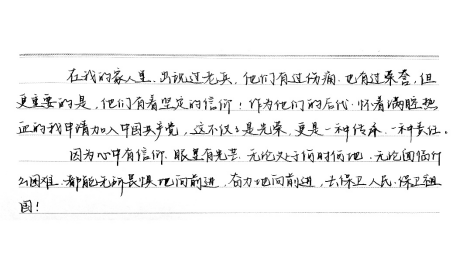 在我的家人里，出现过老兵，他们有过伤痛，也有过荣誉，但
更重要的是，他们有着坚定的信仰！作为他们的后代，怀着满腔热
血的我申请加入中国共产党，这不仅仅是光荣，更是一种传承，一种责任。
因为心中有信仰，眼里有光芒，无论处于何时何地，无论面临什
么困难，都能无所畏惧地向前进，奋力地向前进，去保卫人民，保卫祖
国！